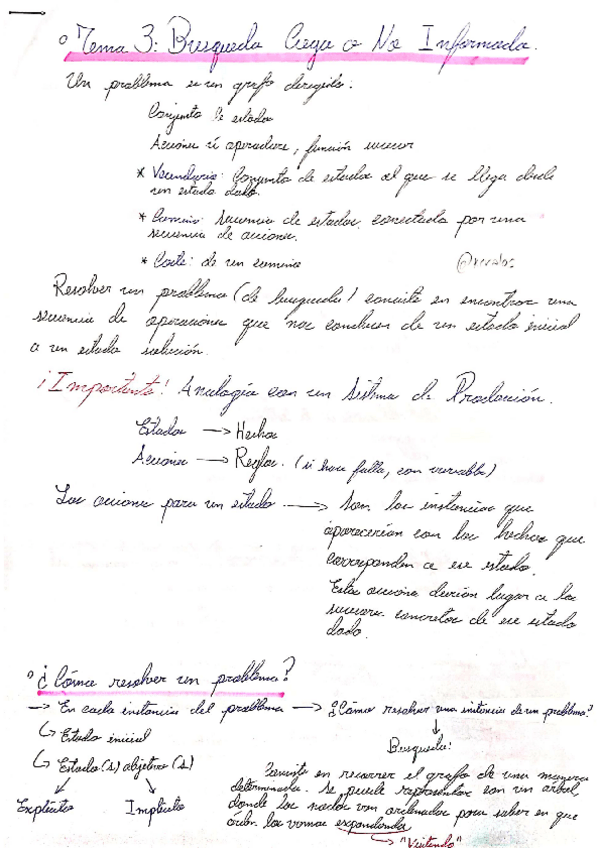 Tema 3: Busqueda Ciega o No Informada.
Un problema es un grafo dirigido:
Conjunto de estados
Acciones ú operadores, función sucesor
* Vecindario: Conjunto de estados al que se llega desde
un estado dado.
* Camino: secuencia de estados conectada por una
secuencia de acciones.
* Coste: de un camino
Resolver un problema (de busqueda) consiste en encontrar una
secuencia de operaciones que nos conducen de un estado inicial
a un estado solución.
¡Importante! Analogía con un Sistema de Producción.
Estados → Hechos
Acciones → Reglas. (si hace falta, con variables)
Las acciones para un estado → Son las instancias que
aparecerían con los hechos que
corresponden a ese estado.
Estas acciones darían lugar a los
sucesores concretos de ese estado
dado.
¿Cómo resolver un problema?
→ En cada instancia del problema → ¿Cómo resolver una instancia de un problema?
↳ Estado inicial
Busqueda:
↳ Estado(s) objetivo(s)
Consiste en recorrer el grafo de una manera
determinada. Se puede representar con un arbol
Explícitos Implícitos
donde los nodos van ordenados para saber en que
orden los vamos expandiendo
↳ "Visitando"